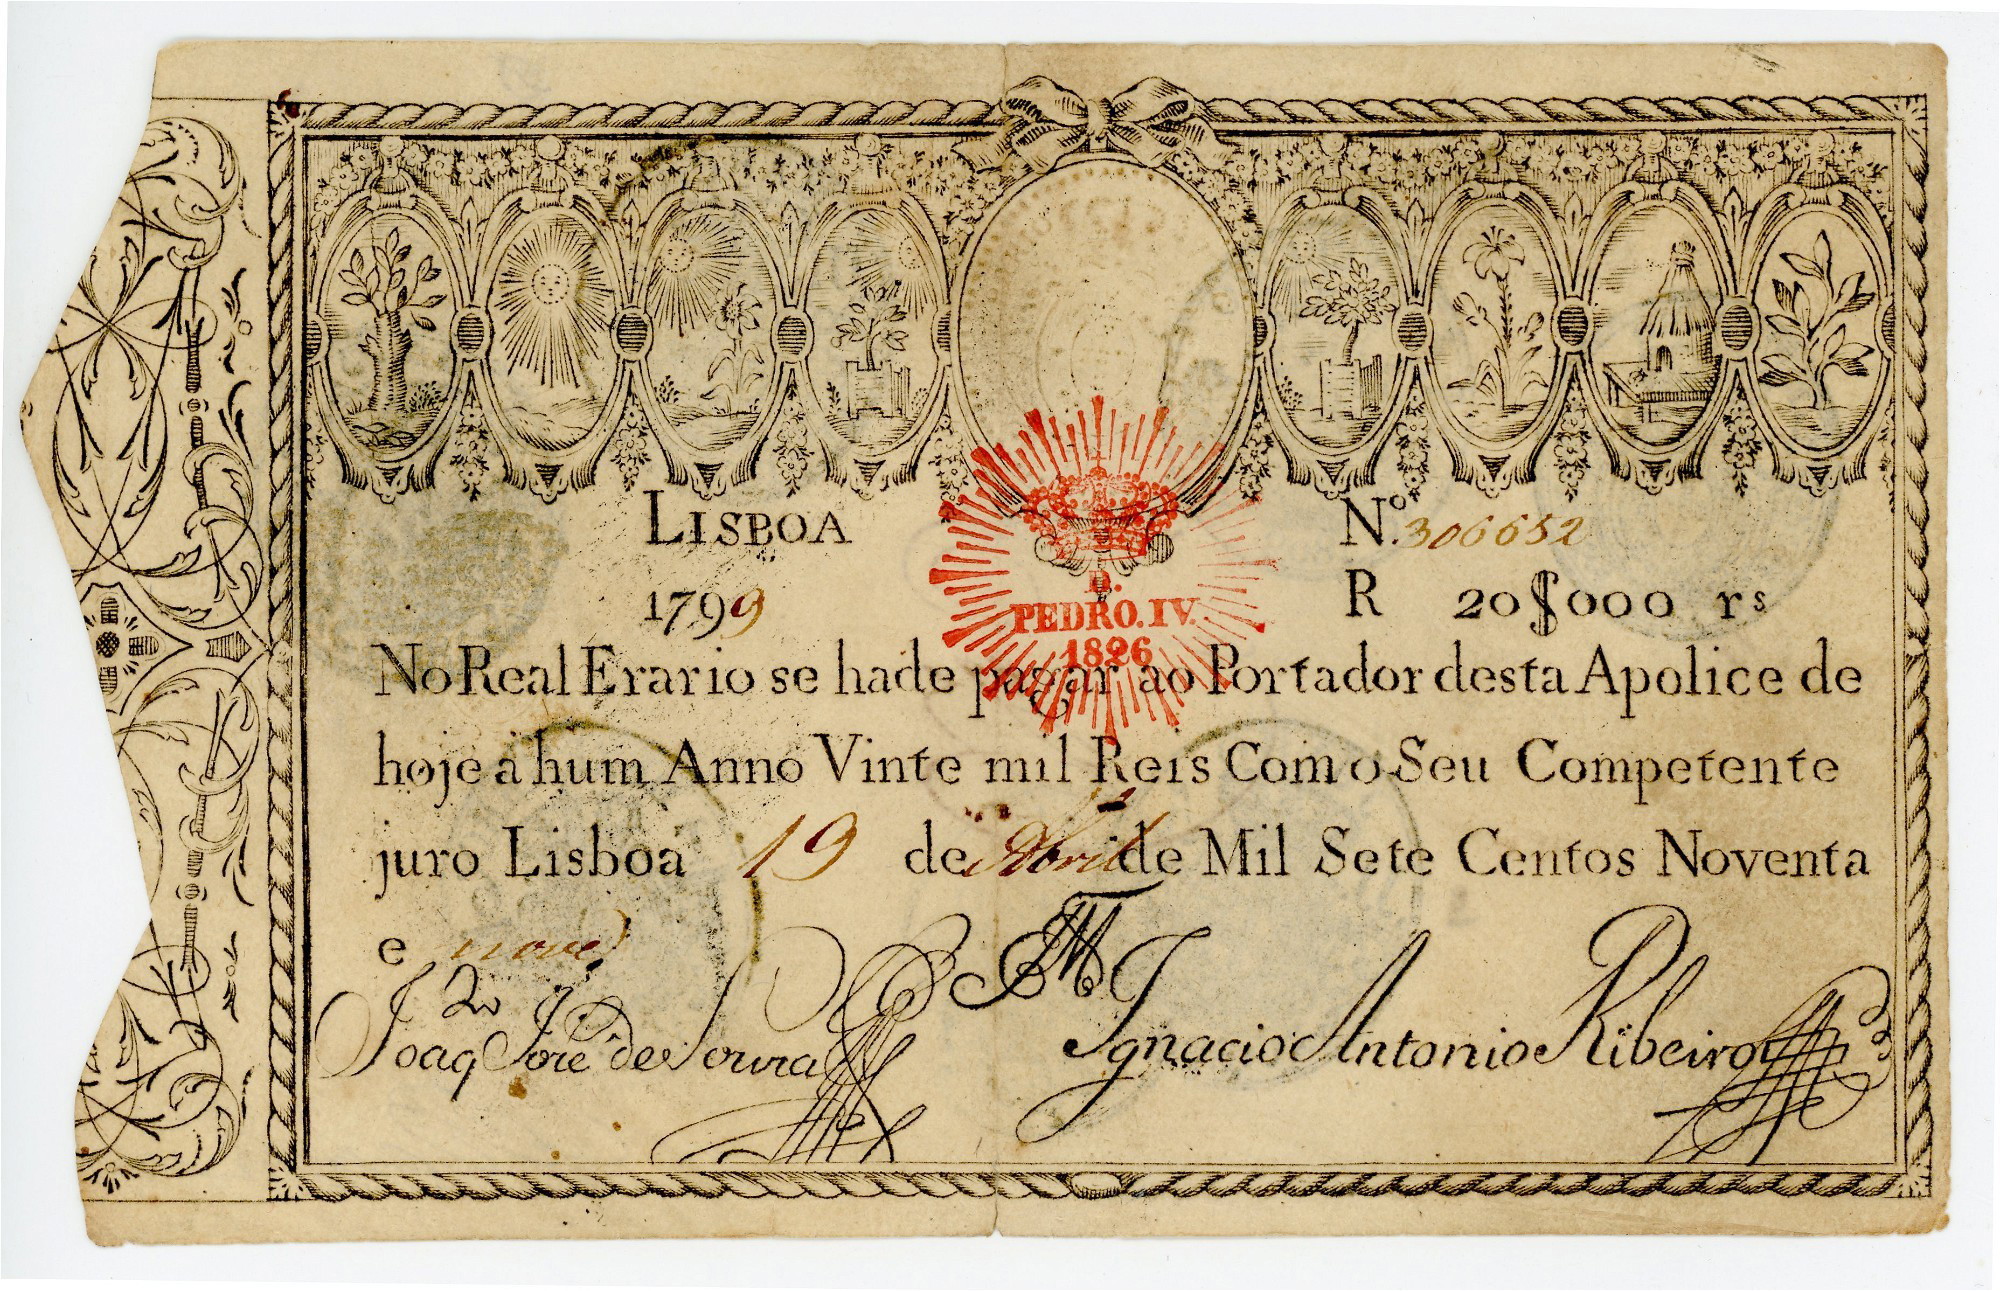 LISBOA
Nº 306652
1799
R 20$000 rs
D.
PEDRO.IV.
1826
No Real Erario se hade pagar ao Portador desta Apolice de
hoje a hum Anno Vinte mil Reis Com o Seu Competente
juro Lisboa 19 de Abril de Mil Sete Centos Noventa
e nove
Joaqm José de Souza
Ignacio Antonio Ribeiro